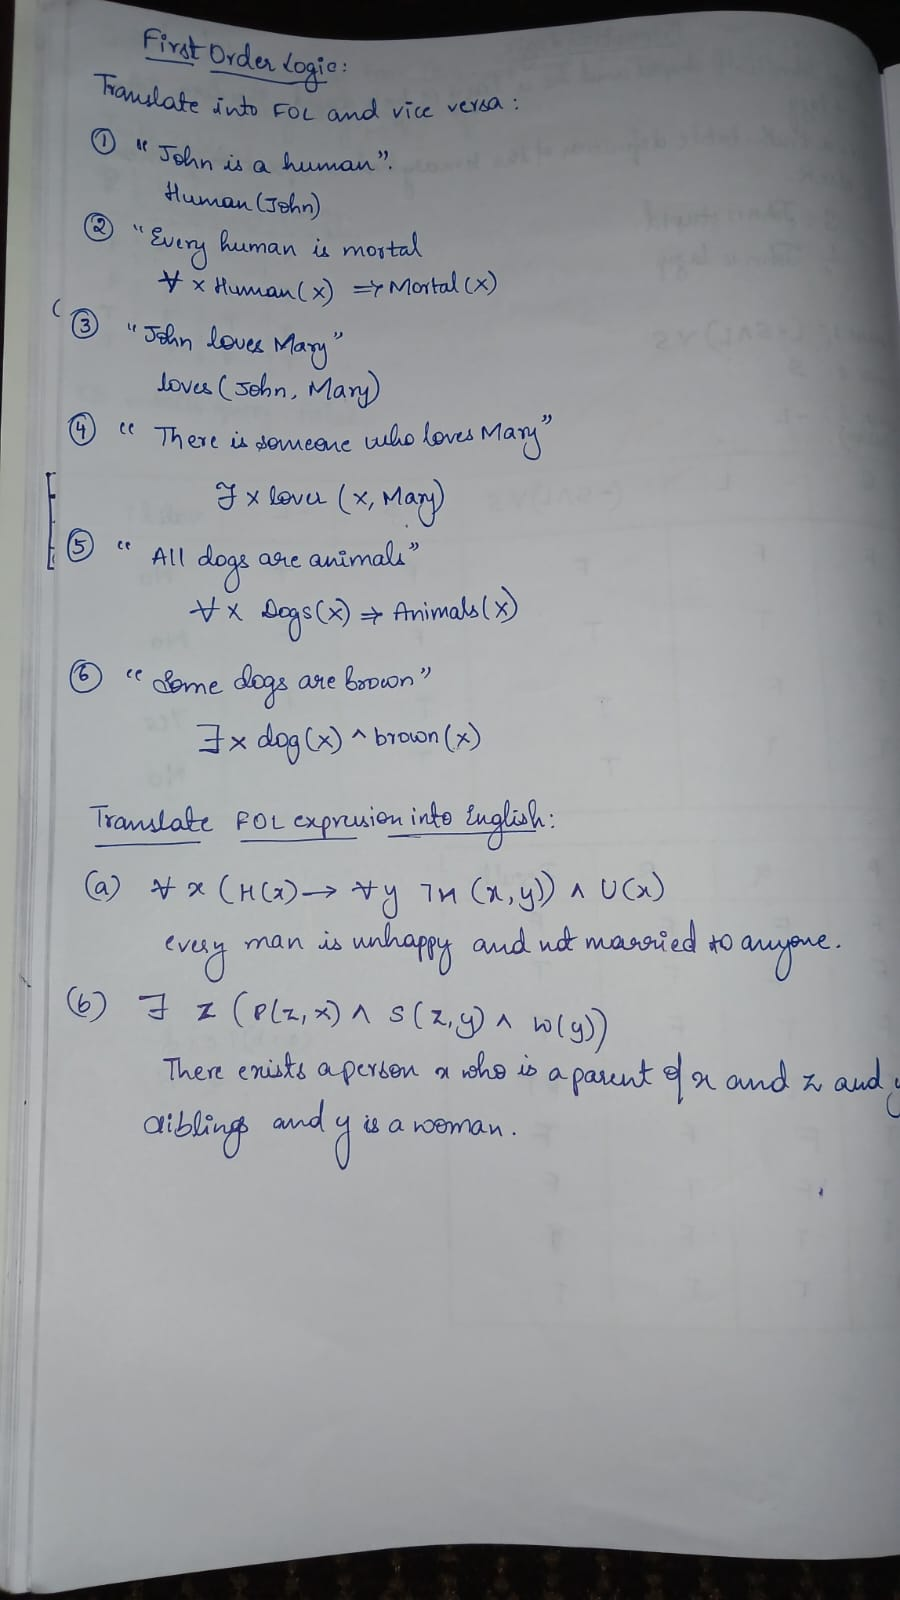 First Order Logic:
Translate into FOL and vice versa:
① "John is a human".
Human(John)
② "Every human is mortal
∀ x Human(x) => Mortal(x)
③ "John loves Mary"
loves (John, Mary)
④ "There is someone who loves Mary"
∃ x loves (x, Mary)
⑤ "All dogs are animals"
∀ x Dogs(x) => Animals(x)
⑥ "Some dogs are brown"
∃ x dog(x) ^ brown(x)
Translate FOL expresion into English:
(a) ∀ x (H(x) → ∀ y ¬M (x, y)) ^ U(x)
every man is unhappy and not married to anyone.
(b) ∃ z (P(z, x) ^ S(z, y) ^ W(y))
There exists a person x who is a parent of x and z and y
siblings and y is a woman.